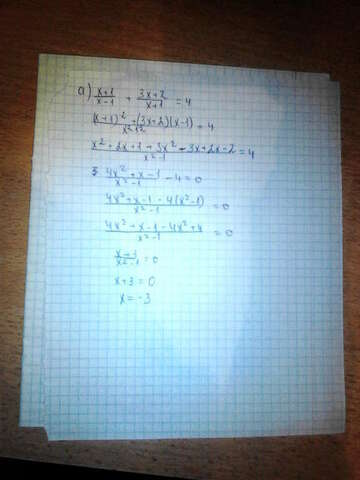 а) (x+1)/(x-1) + (3x+2)/(x+1) = 4
((x+1)² + (3x+2)(x-1))/(x²-1²) = 4
(x² + 2x + 1 + 3x² - 3x + 2x - 2)/(x²-1) = 4
(4x² + x - 1)/(x²-1) - 4 = 0
(4x² + x - 1 - 4(x²-1))/(x²-1) = 0
(4x² + x - 1 - 4x² + 4)/(x²-1) = 0
/(x²-1) = 0
x+3 = 0
x = -3